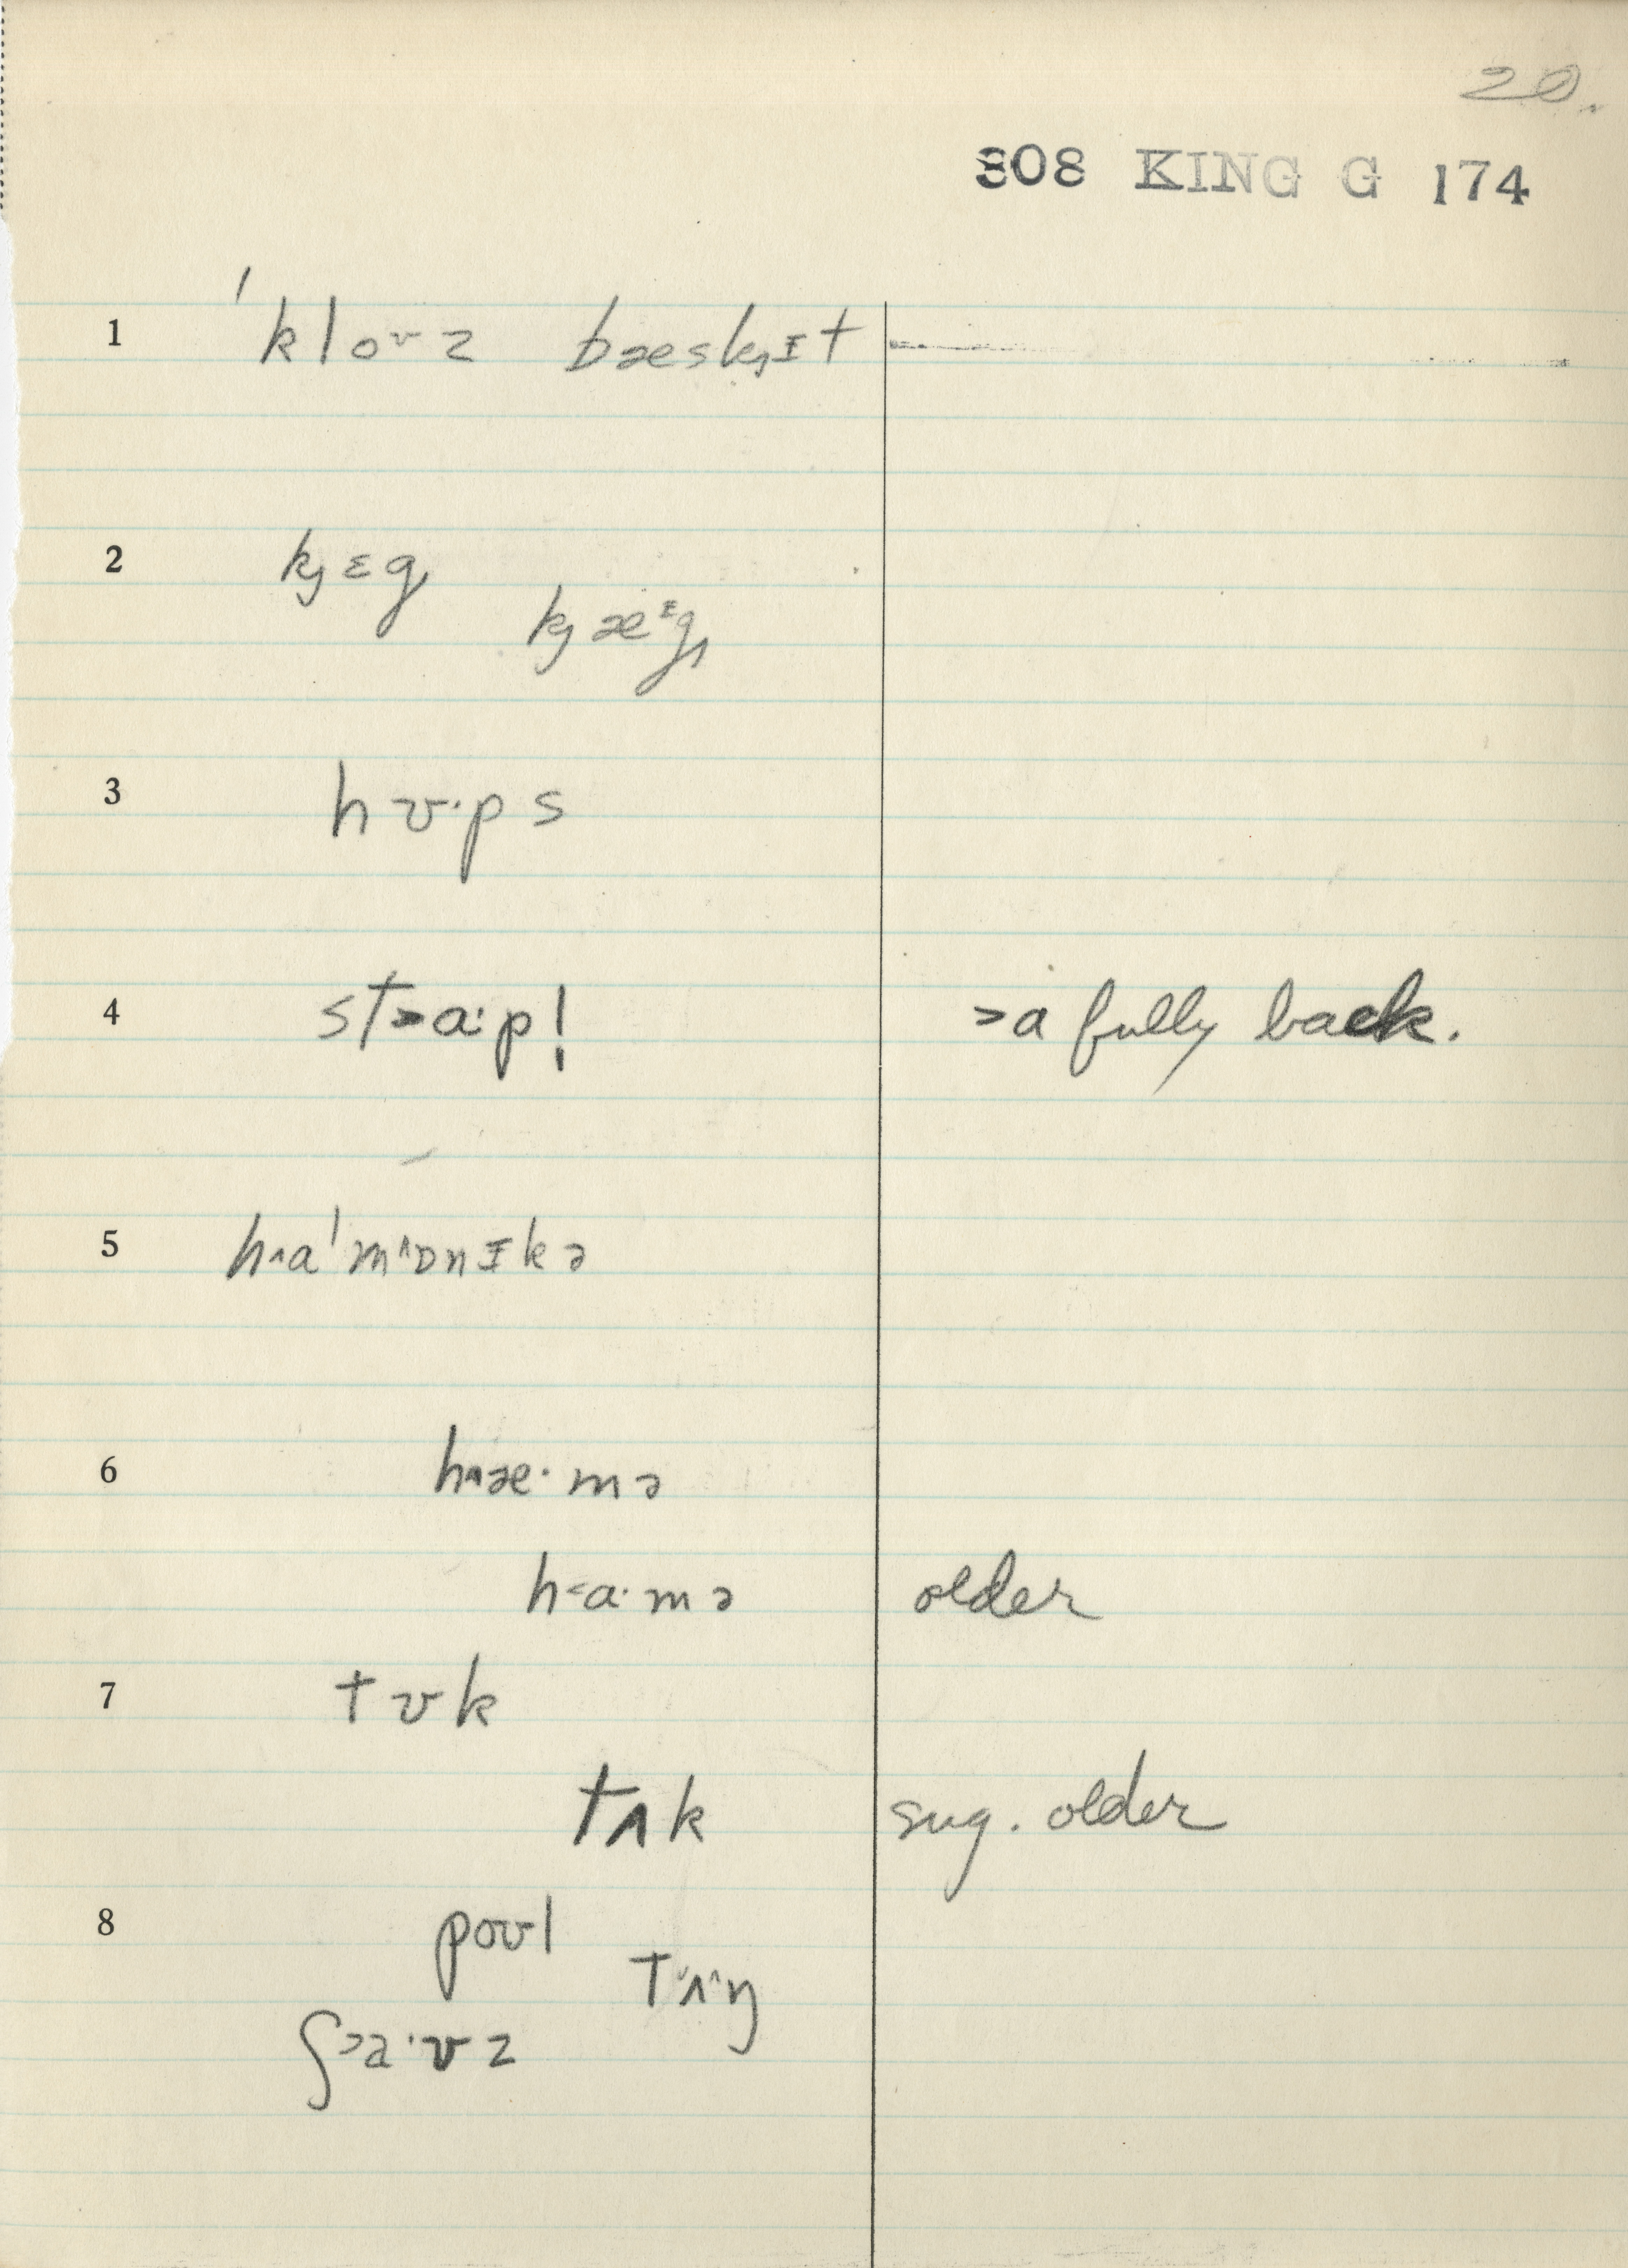 20.
808 KING G 174
1 ˈkloʊz bæskɪt
2 kjɛg
kjæᶦg
3 hʊ·ps
4 st>a·p! >a fully back.
5 h˄aˈm˄ɒnɪkə
6 h˄æ·mə
h<a·mə older
7 tʊk
tʌk sug. older
8 poʊl
tʌ˄ŋ
ʃ>a·ʊz